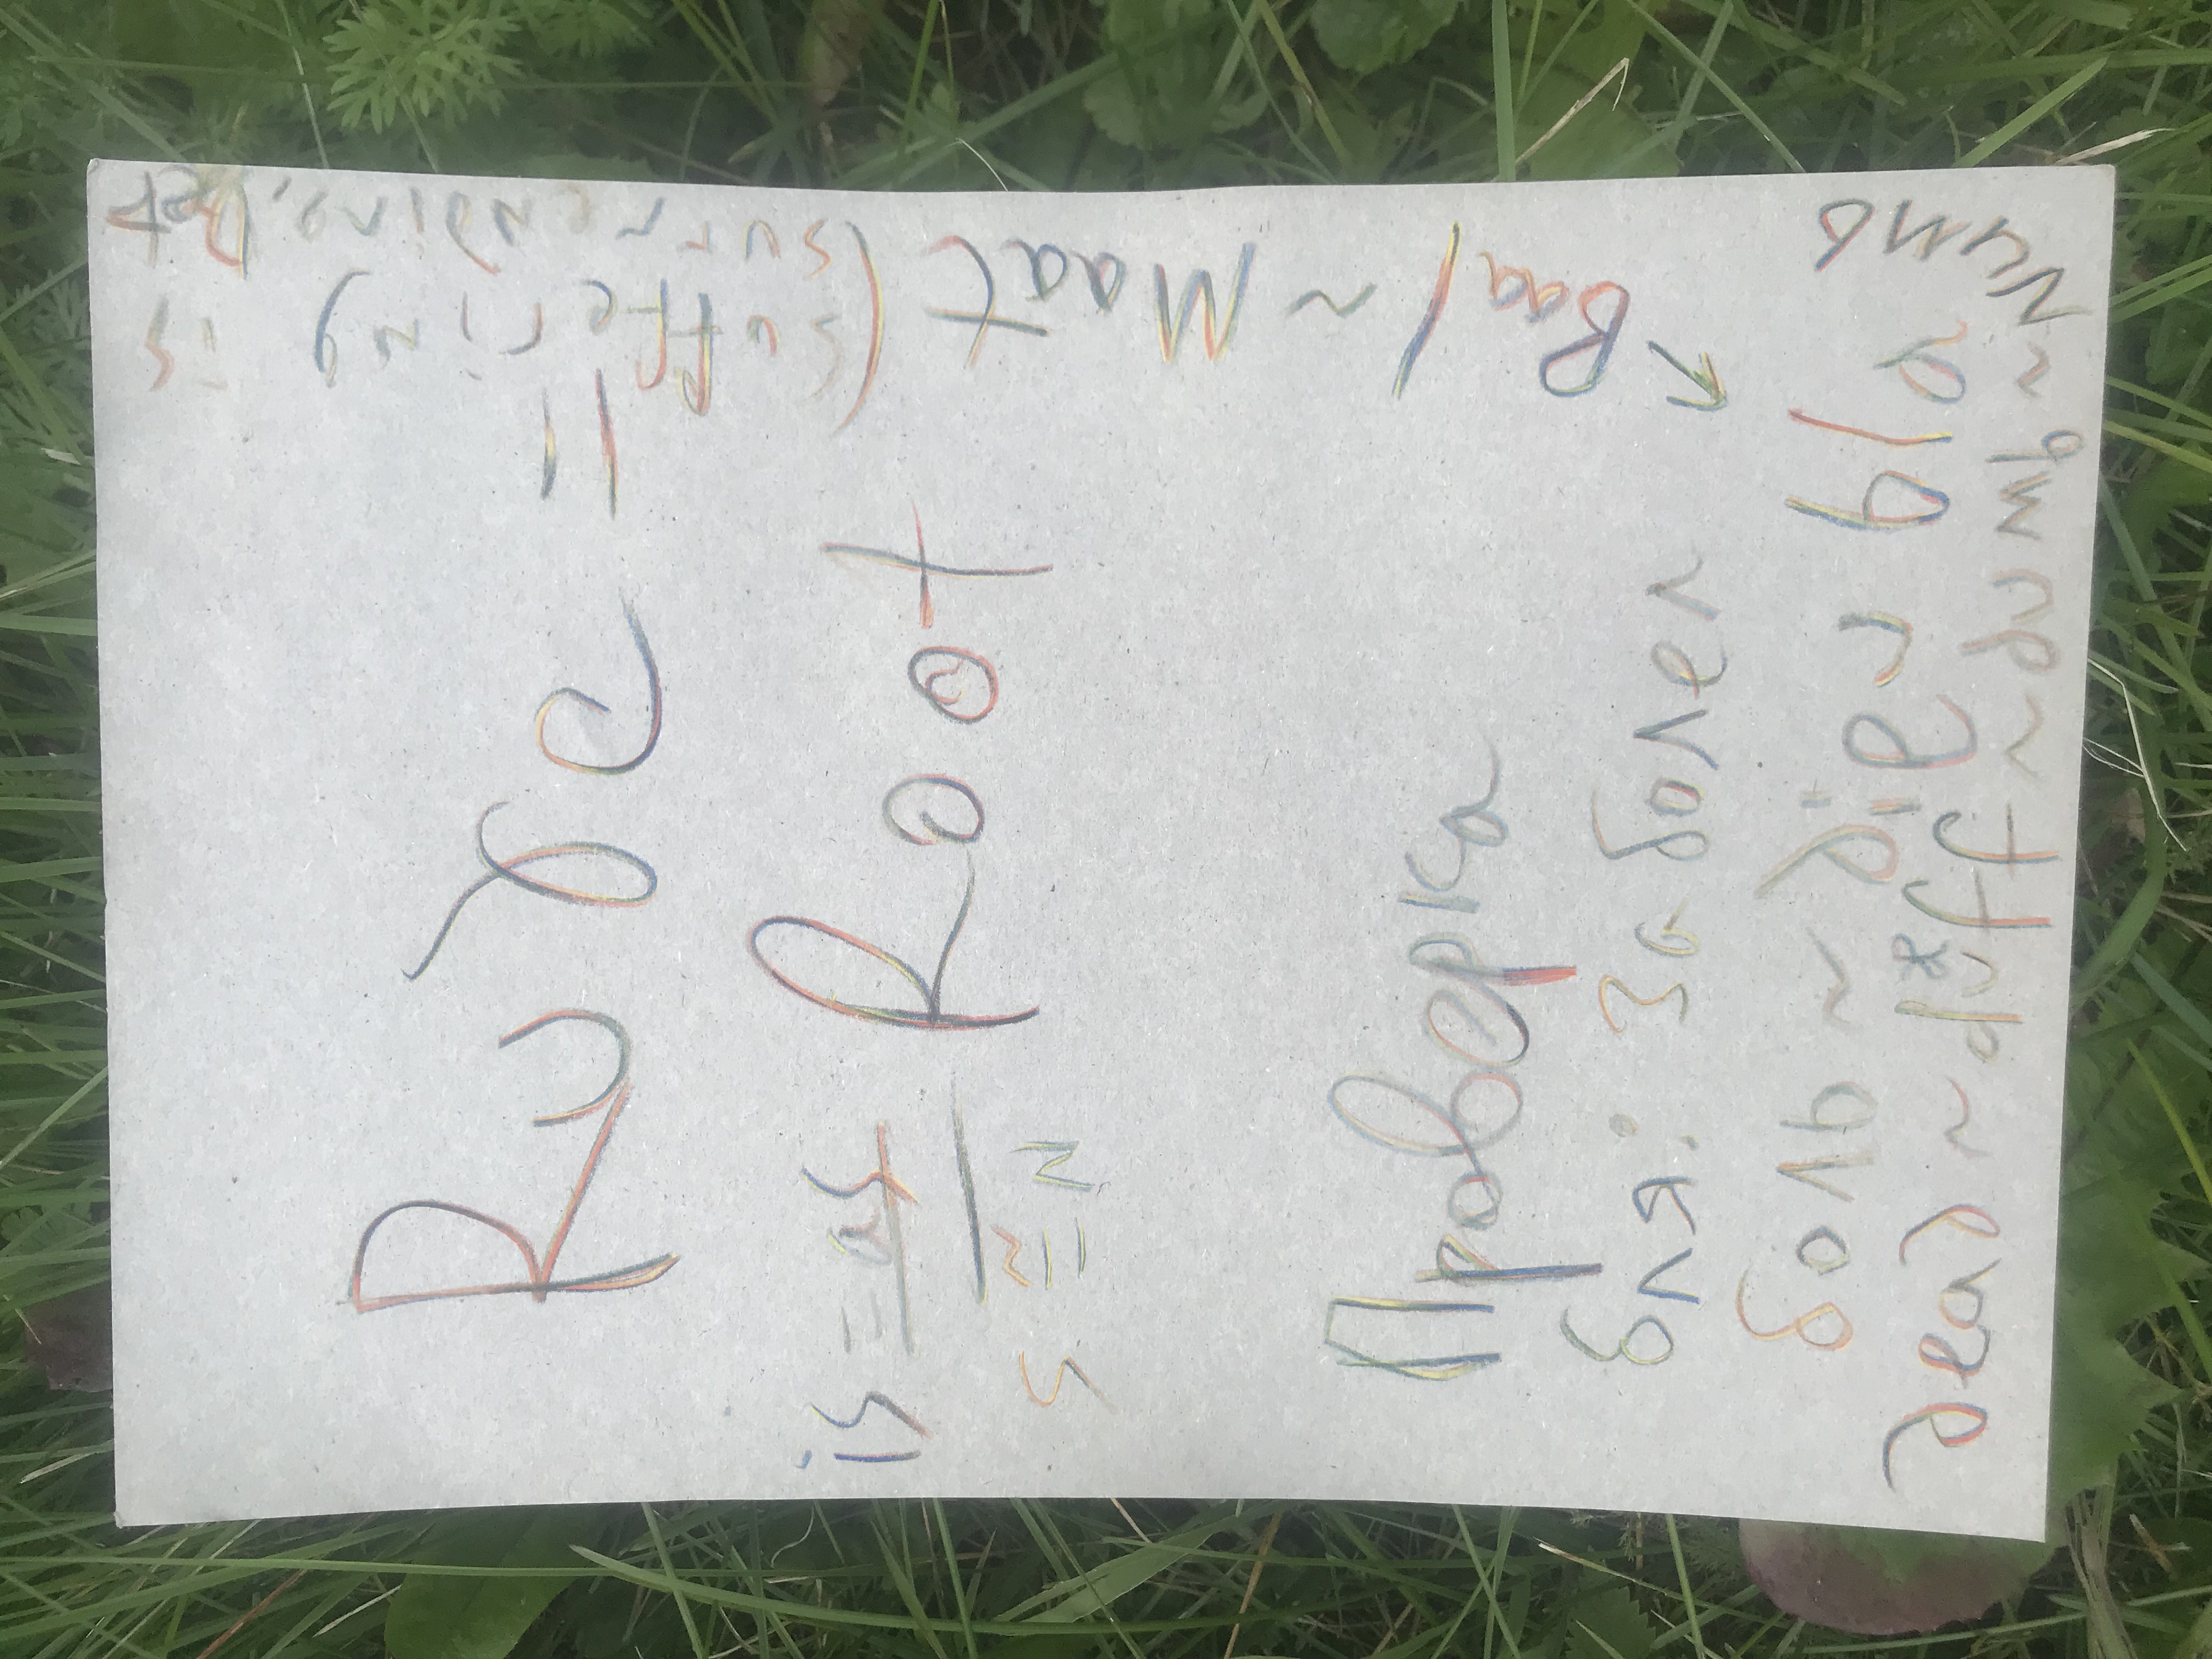 Rurc =
is = as
Root
s ≅ N
Проверка
бля: Заболел
боль ~ dieu bla
dead ~ duff ~ dumb ~ Numb
← Baal ~ Maat (suffering is
surrending, Dat